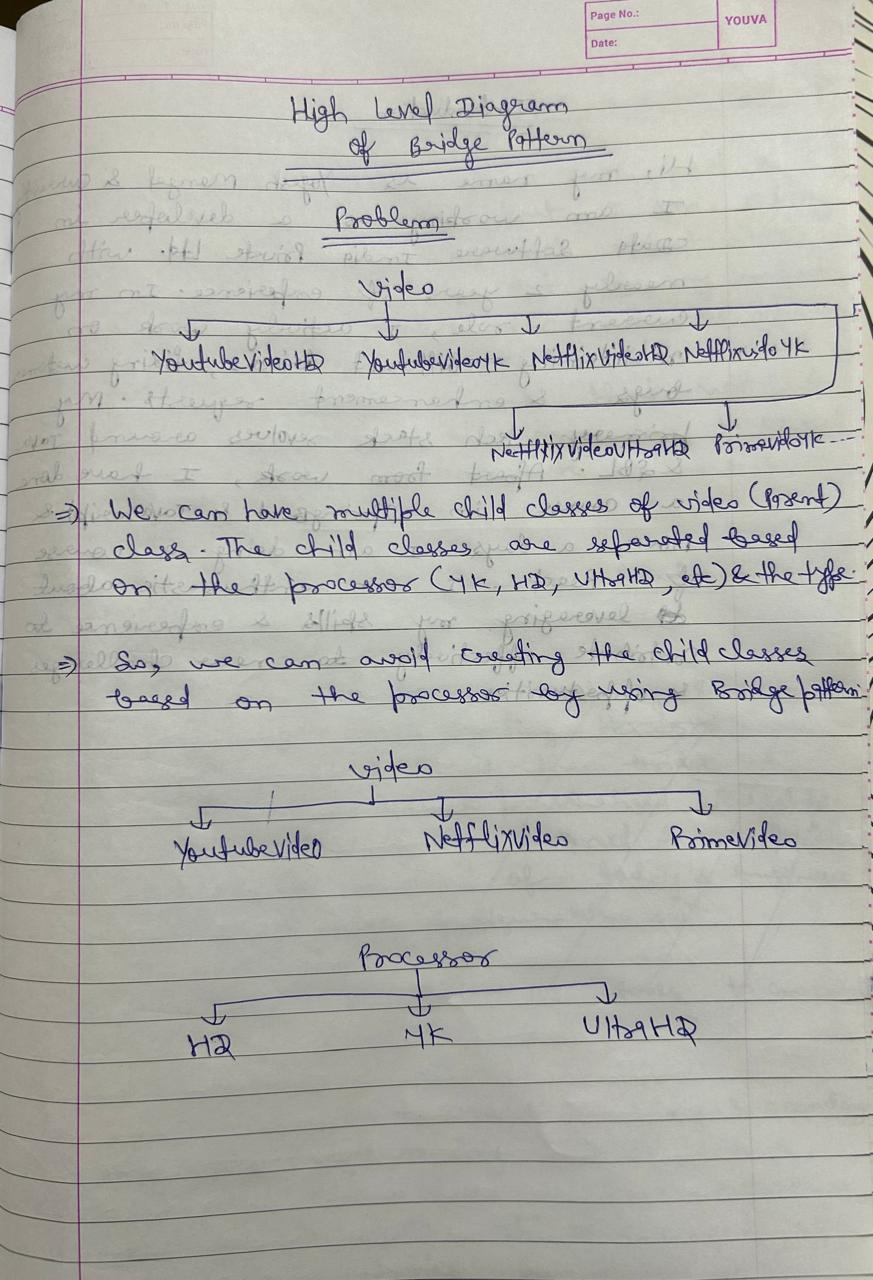 Page No.:
YOUVA
Date:
High Level Diagram
of Bridge Pattern
Problem
Video
YoutubeVideoHD YoutubeVideo4K NetflixVideoHD NetflixVideo4K
NetflixVideoUltraHD PrimeVideo4K ---
⇒ We can have multiple child classes of video (Parent)
class. The child classes are separated based
on the processor (4K, HD, UltraHD, etc) & the type.
⇒ So, we can avoid creating the child classes
based on the processor by using Bridge pattern
Video
YoutubeVideo NetflixVideo PrimeVideo
Processor
HD 4K UltraHD